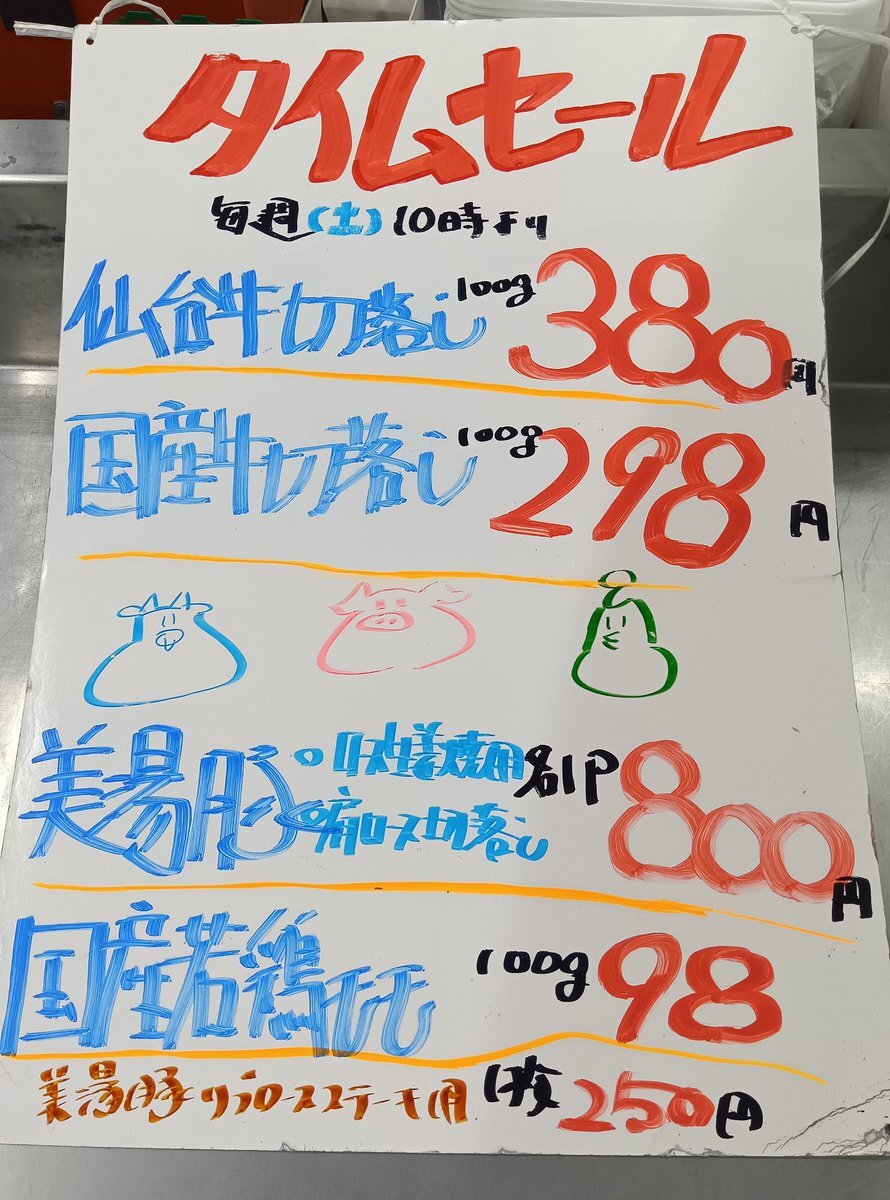 タイムセール
毎週(土)10時より
仙台牛切落し 100g 380円
国産牛切落し 100g 298円
美湯豚 ロース生姜焼用 各1P 800円
肩ロース切落し
国産若鶏モモ 100g 98
美湯豚リブロースステーキ用 1枚 250円